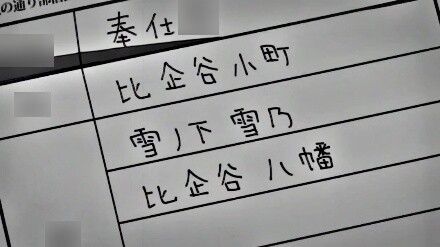 の通り部
奉仕
比企谷小町
雪ノ下 雪乃
比企谷 八幡